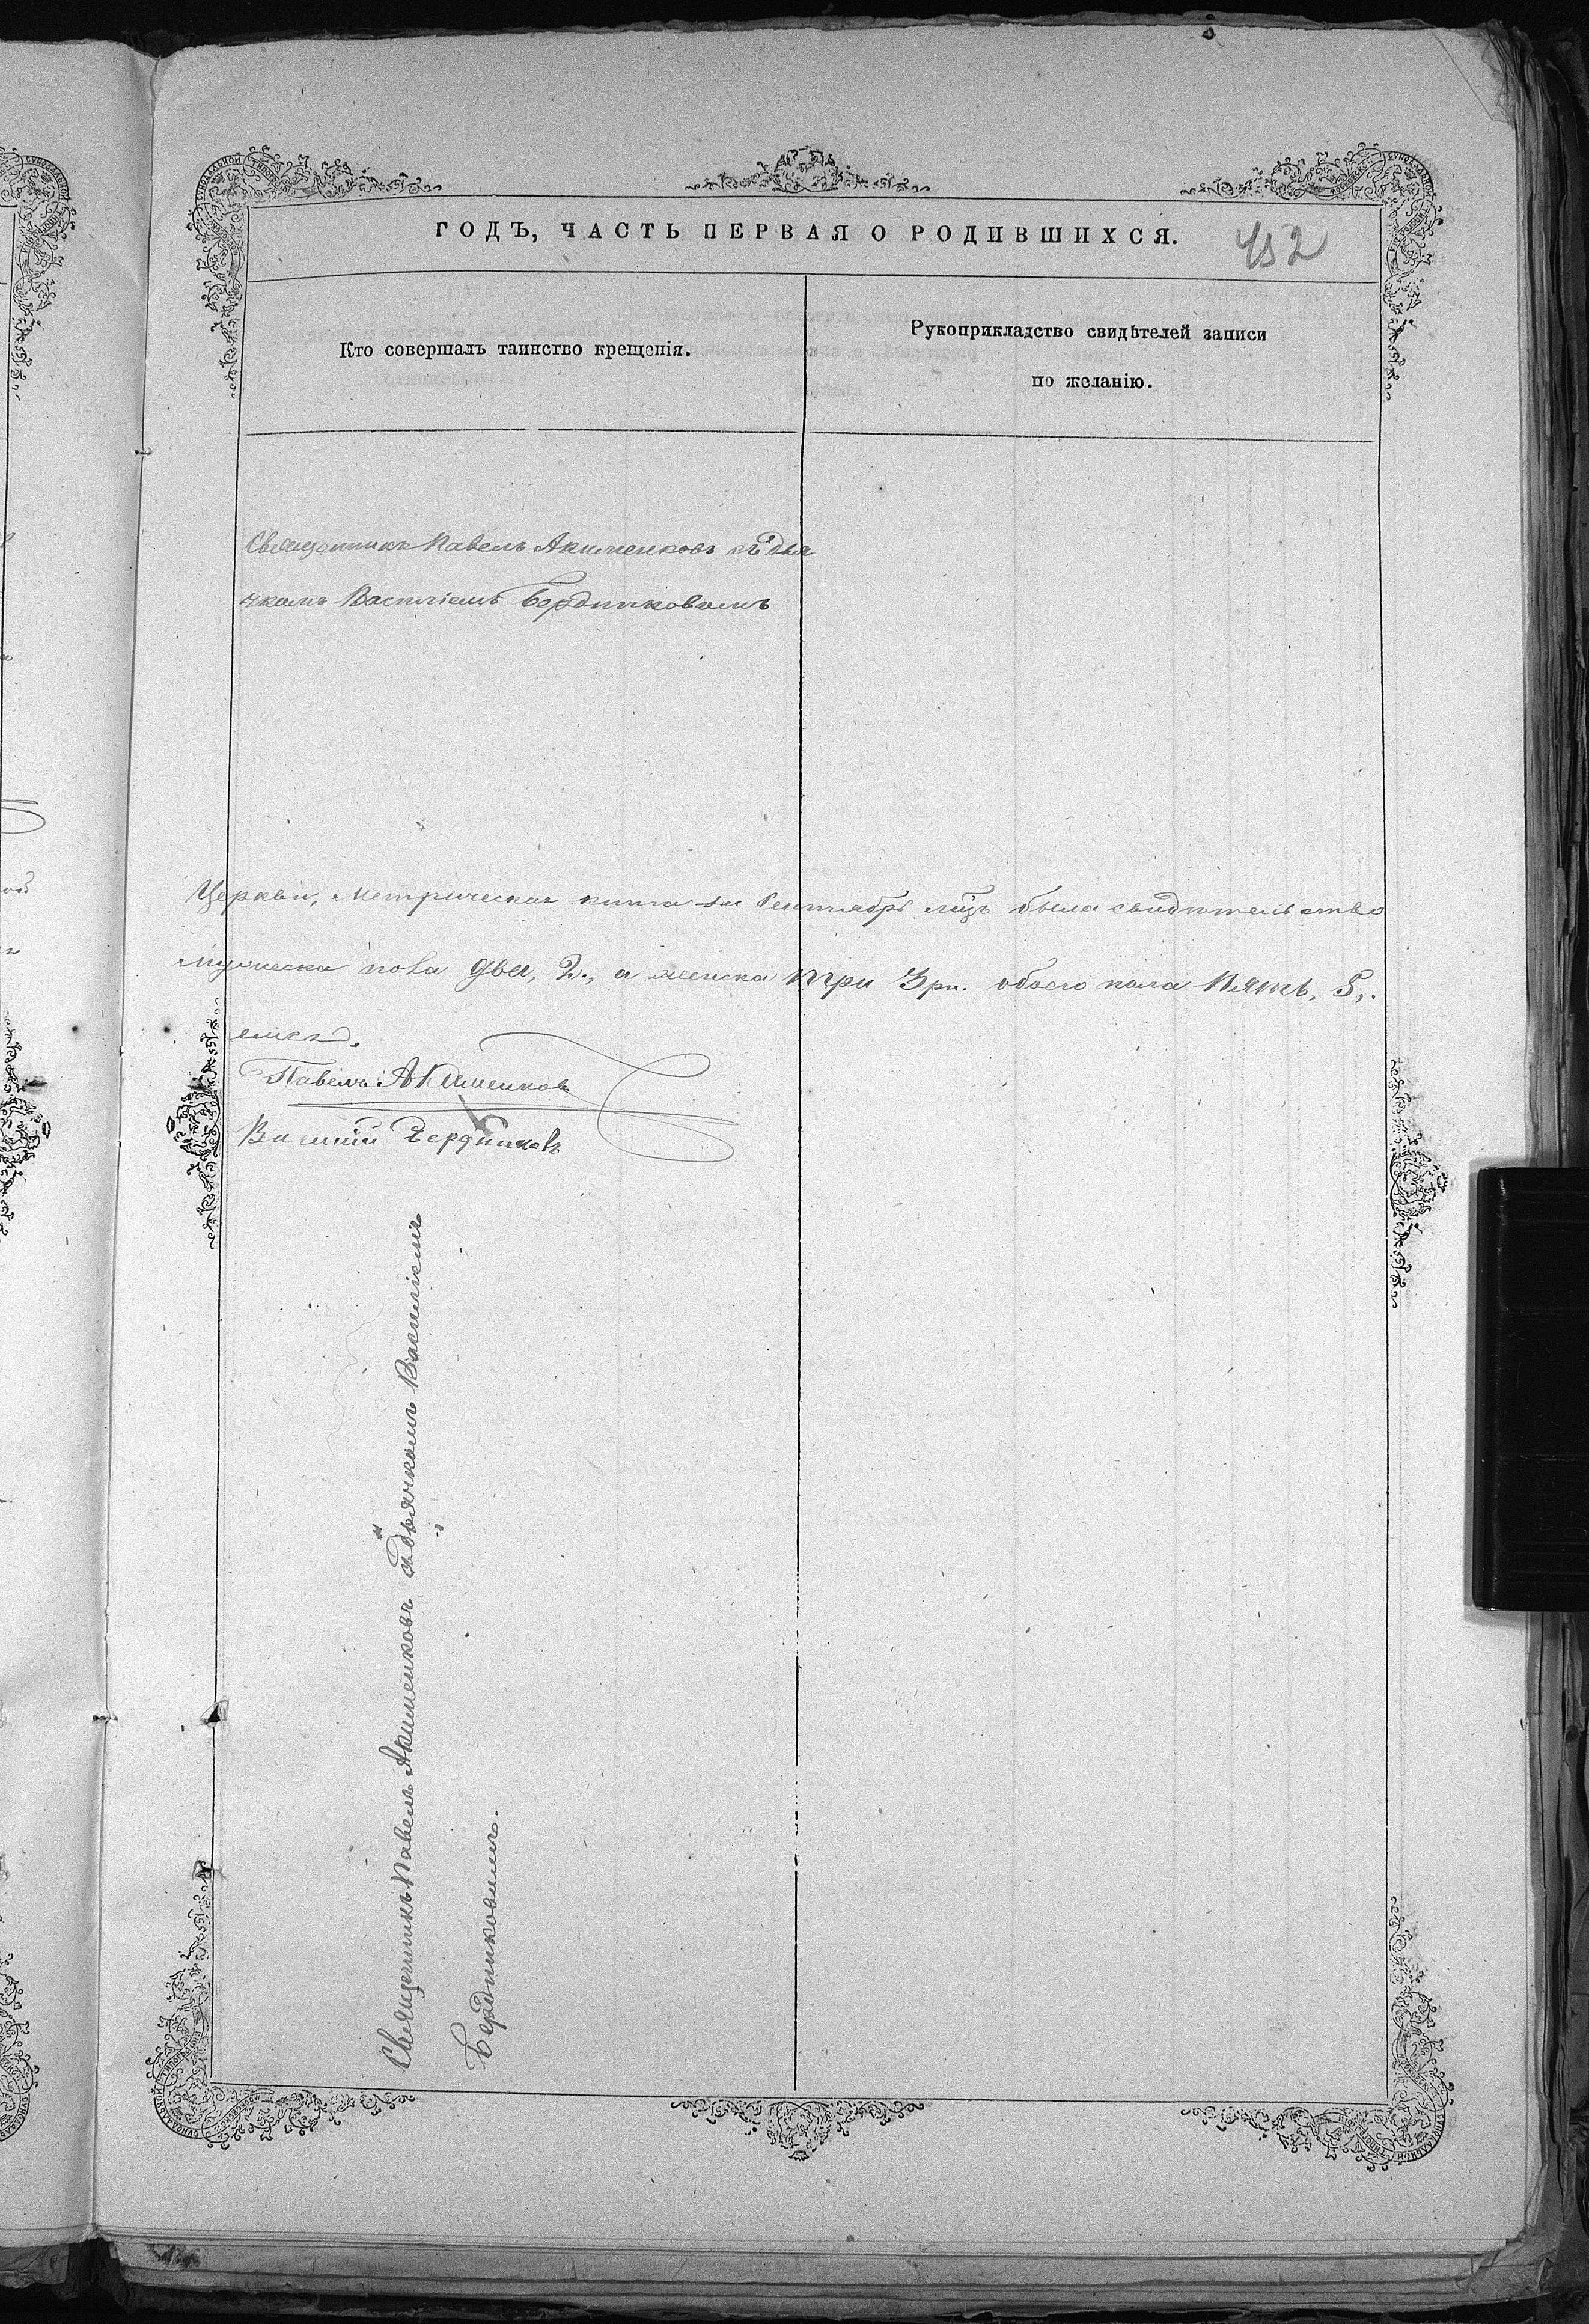 ГОДЪ, ЧАСТЬ ПЕРВАЯ О РОДИВШИХСЯ.
452
Кто совершалъ таинство крещенія.
Рукоприкладство свидѣтелей записи
по желанію.
Священникъ Павелъ Акименковъ съ дья
чкомъ Василіемъ Бердниковымъ
Церкви, Метрическая книга за Сентябрь мцъ была свидѣтельство
мужеска пола два, 2., а женска три 3ри. обоего пола Пять, 5,.
Павелъ Акименковъ
Василій Бердниковъ
Священникъ Павелъ Акименковъ съ дьячкомъ Василіемъ
Бердниковымъ.